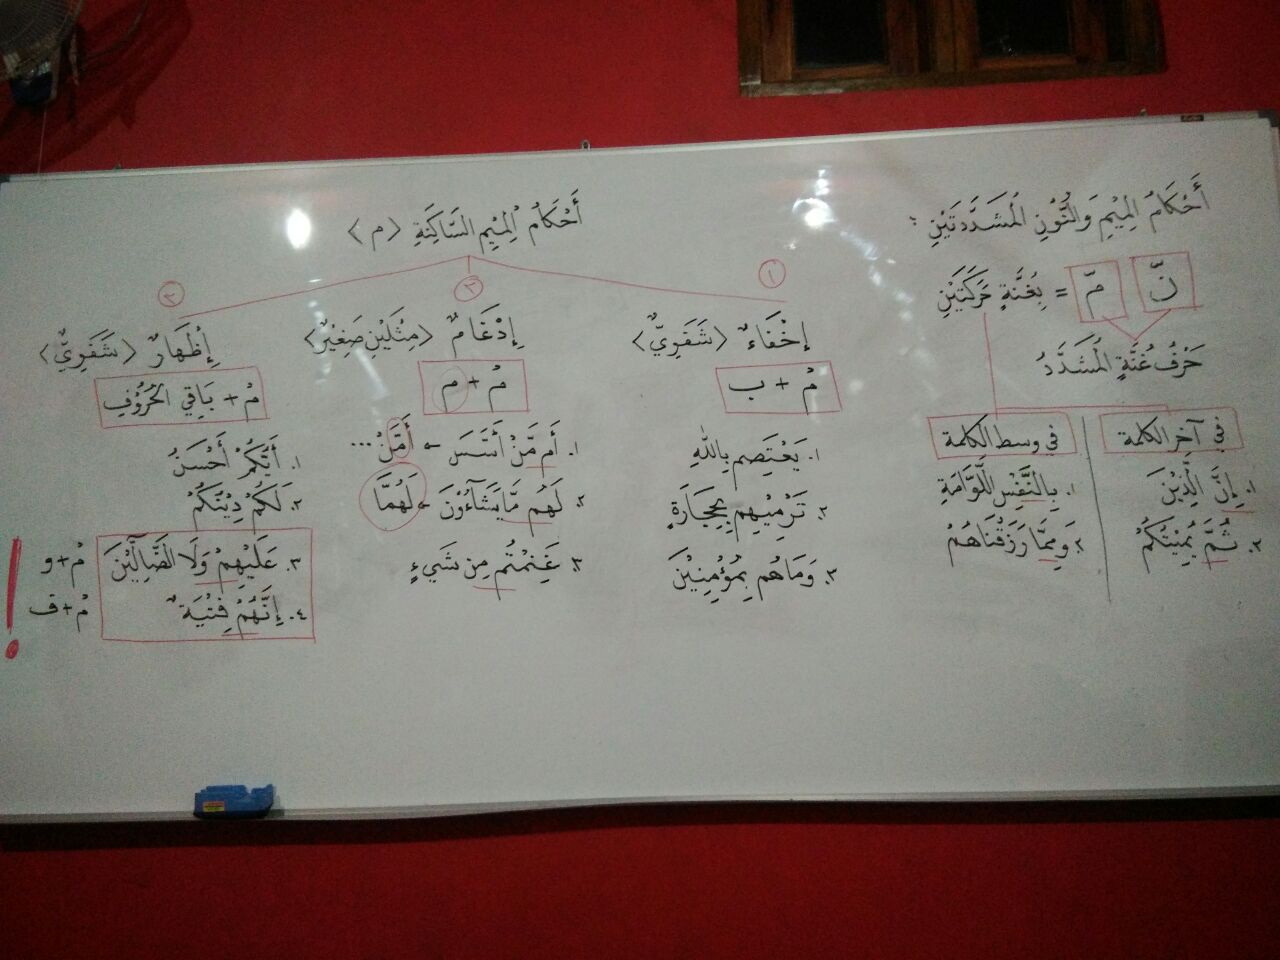 أَحْكَامُ الْمِيْمِ وَالنُّوْنِ الْمُشَدَّدَتَيْنِ :
نّ مّ = بِغُنَّةٍ حَرَكَتَيْنِ
حَرْفُ غُنَّةٍ الْمُشَدَّدُ
في آخِرِ الكلمة
١. إِنَّ الَّذِيْنَ
٢. ثُمَّ يُمِيْتُكُمْ
في وسط الكلمة
١. بِالنَّفْسِ اللَّوَّامَةِ
٢. وَمِمَّا رَزَقْنَاهُمْ
أَحْكَامُ الْمِيْمِ السَّاكِنَةِ ⟨م⟩
١
إِخْفَاءٌ ⟨شَفَوِيٌّ⟩
مْ + ب
١. يَعْتَصِم بِاللهِ
٢. تَرْمِيْهِم بِحِجَارَةٍ
٣. وَمَاهُم بِمُؤْمِنِيْنَ
٢
إِدْغَامٌ ⟨مِثْلَيْنِ صَغِيْرٌ⟩
مْ + م
١. أَم مَّنْ أَسَّسَ ← أَمَّنْ ...
٢. لَهُم مَّايَشَآءُوْنَ ← لَهُمَّا
٣. غَنِمْتُم مِن شَيءٍ
٣
إِظْهَارٌ ⟨شَفَوِيٌّ⟩
مْ + بَاقِي الْحُرُوْفِ
١. أَيُّكُمْ أَحْسَنُ
٢. لَكُمْ دِيْنُكُمْ
٣. عَلَيْهِمْ وَلَا الضَّآلِّيْنَ مْ+و
٤. إِنَّهُمْ فِتْيَةٌ مْ+ف
!